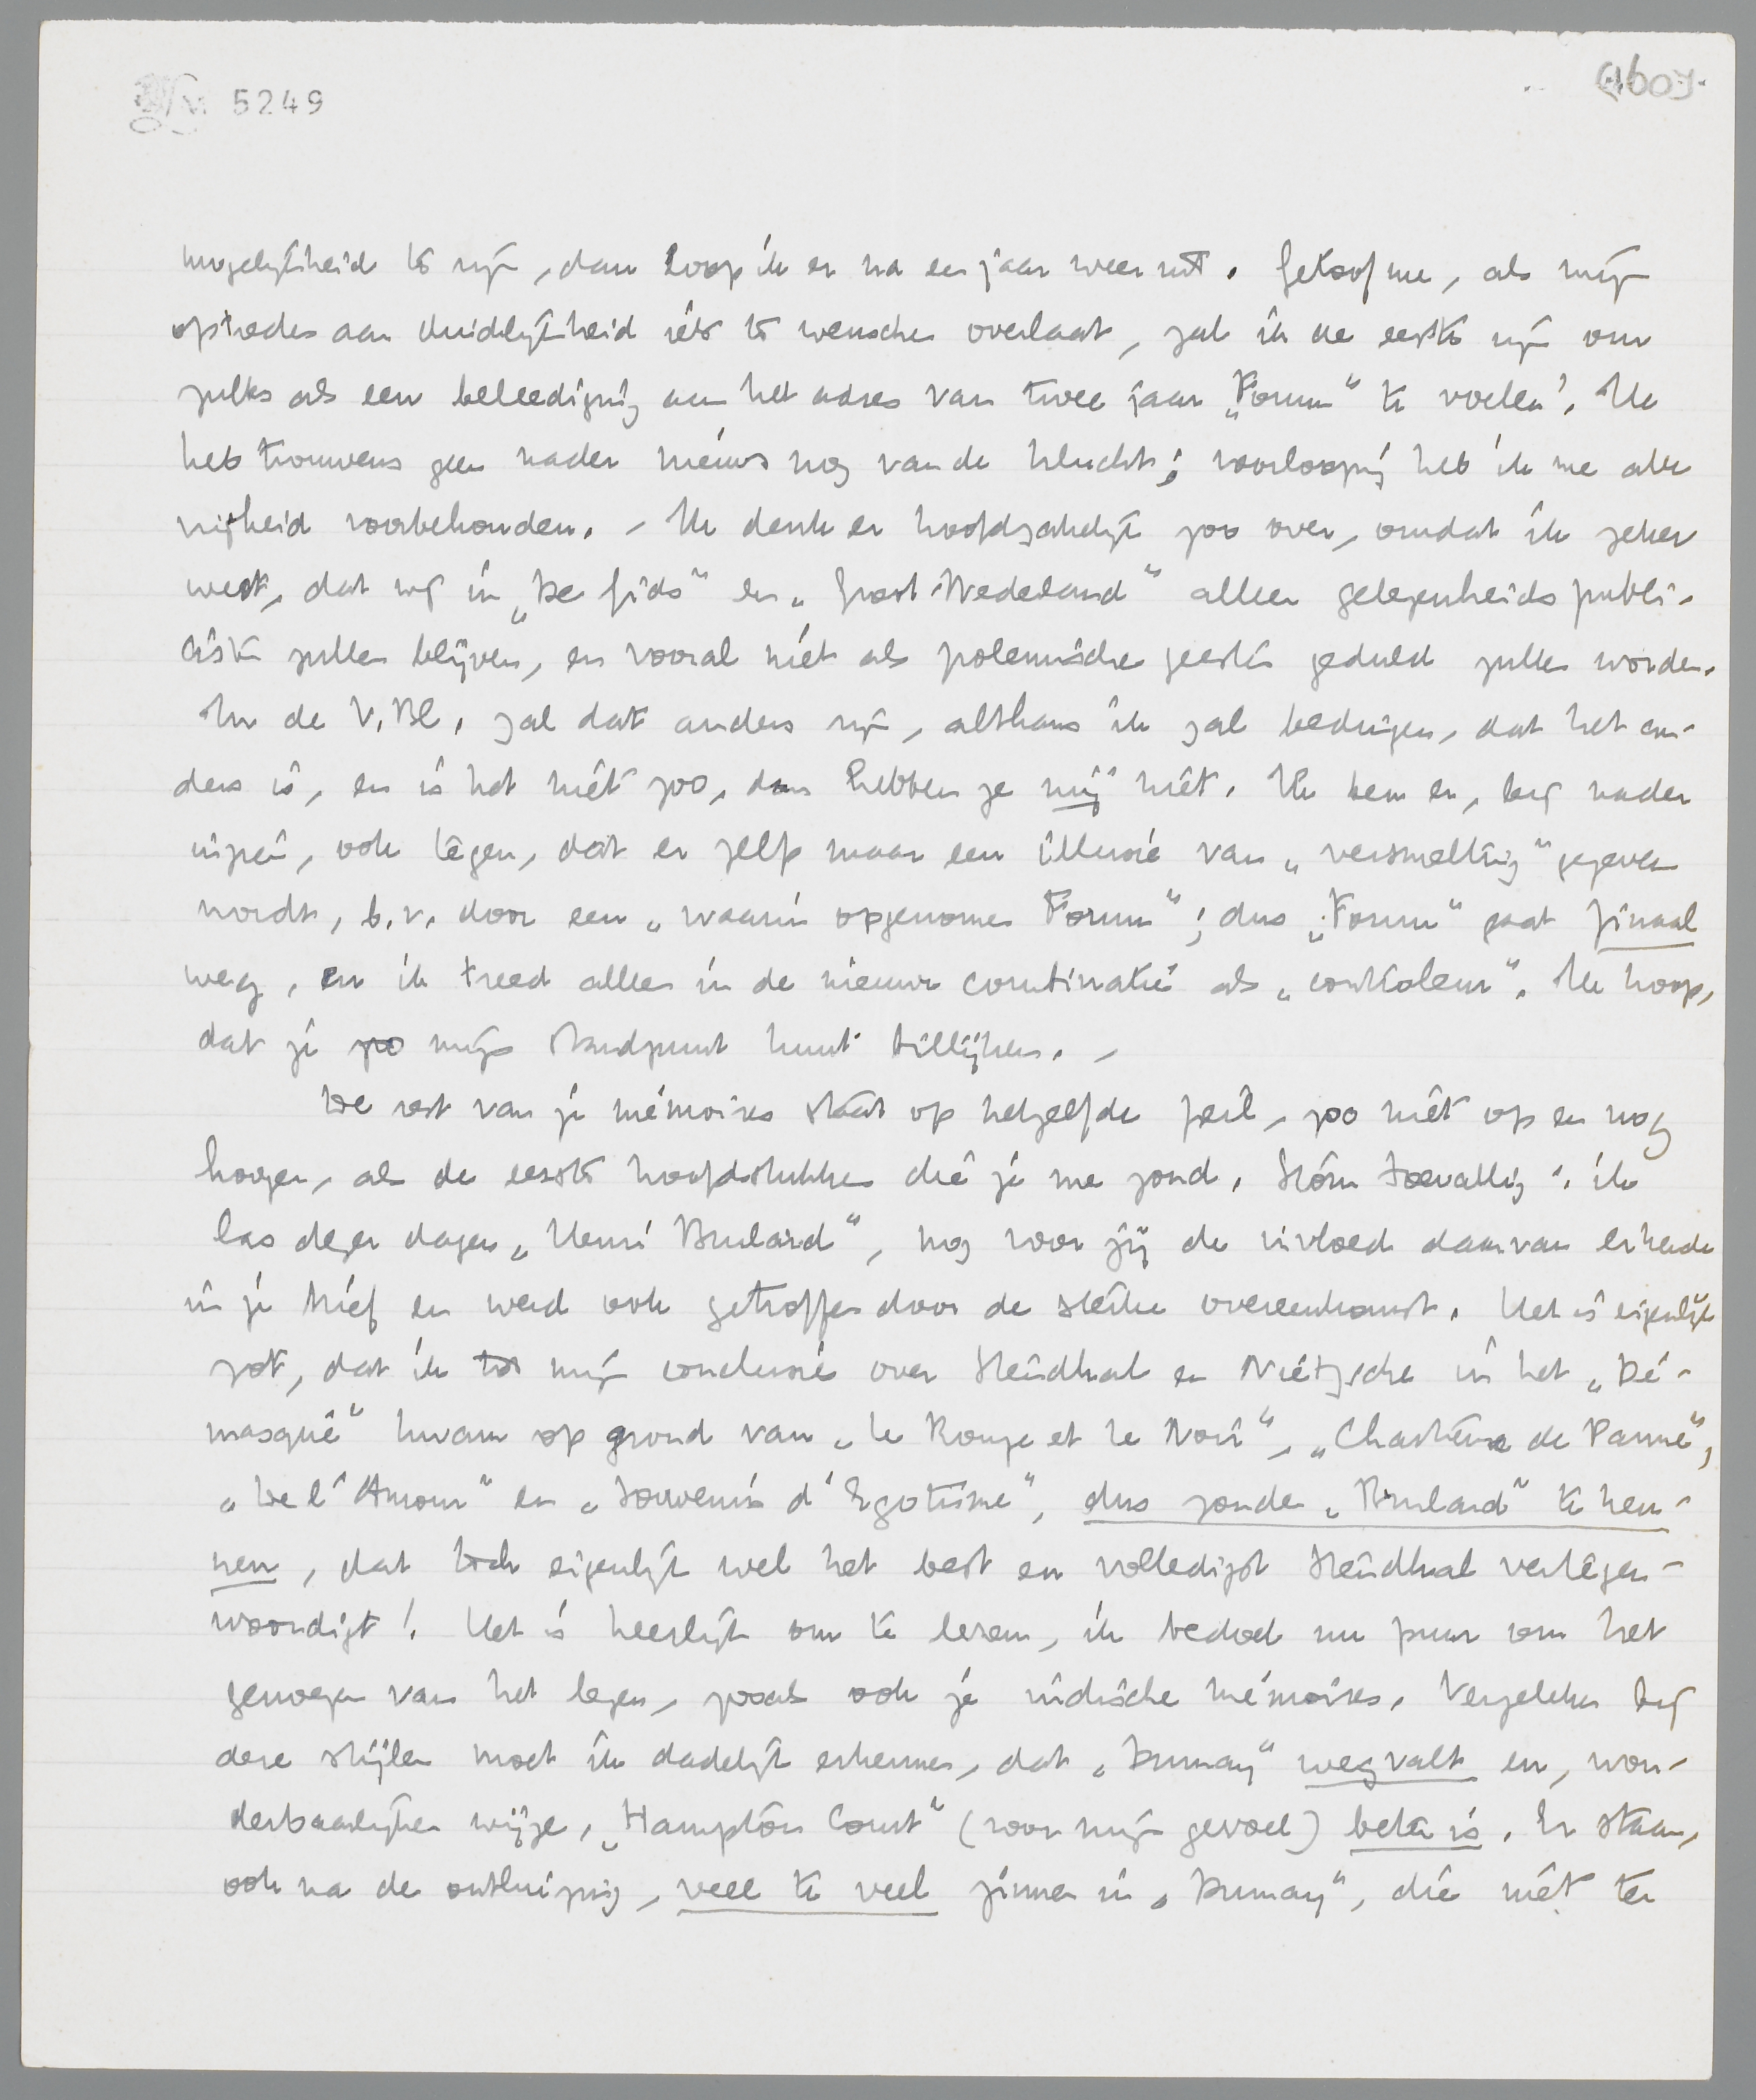 5249
mogelijkheid te zijn, dan loop ik er na een jaar weer uit. Geloof me, als mijn
optreden aan duidelijkheid iets te wenschen overlaat, zal ik de eerste zijn om
zulks als een beleediging aan het adres van twee jaar „Forum” te voelen! Ik
heb trouwens geen nader nieuws nog van de klucht; voorloopig heb ik me alle
vrijheid voorbehouden. - Ik denk er hoofdzakelijk zoo over, omdat ik zeker
weet, dat wij in „De Gids” en „Groot-Nederland” alleen gelegenheidspubli-
cisten zullen blijven, en vooral niet als polemische geesten geduld zullen worden.
In de V. Bl. zal dat anders zijn, althans ik zal bedingen, dat het an-
ders is, en is het niet zoo, dan hebben ze mij niet. Ik ben er, bij nader
inzien, ook tegen, dat er zelfs maar een illusie van „versmelting” gegeven
wordt, b.v. door een „waarin opgenomen Forum”; dus „Forum” gaat finaal
weg, en ik treed alleen in de nieuwe combinatie als „controleur”. Ik hoop,
dat je zoo mijn standpunt kunt billijken. -
De rest van je mémoires staat op hetzelfde peil, zoo niet op en nog
hooger, als de eerste hoofdstukken die je me zond. Stom toevallig: ik
las dezer dagen „Henri Brulard”, nog voor jij de invloed daarvan erkende
in je brief en werd ook getroffen door de sterke overeenkomst. Het is eigenlijk
zot, dat ik tot mijn conclusie over Stendhal en Nietzsche in het „Dé-
masqué” kwam op grond van „Le Rouge et le Noir”, „Chartreuse de Parme”,
„De l'Amour” en „Souvenirs d'Egotisme”, dus zonder „Brulard” te ken-
nen, dat toch eigenlijk wel het best en volledigst Stendhal vertegen-
woordigt! Het is heerlijk om te lezen, ik bedoel nu puur om het
genoegen van het lezen, zooals ook je indische mémoires. Vergeleken bij
deze stijlen moet ik dadelijk erkennen, dat „Dumay” wegvalt en, won-
derbaarlijker wijze, „Hampton Court” (voor mijn gevoel) beter is. Er staan,
ook na de ontluizing, veel te veel zinnen in „Dumay”, die niet ter